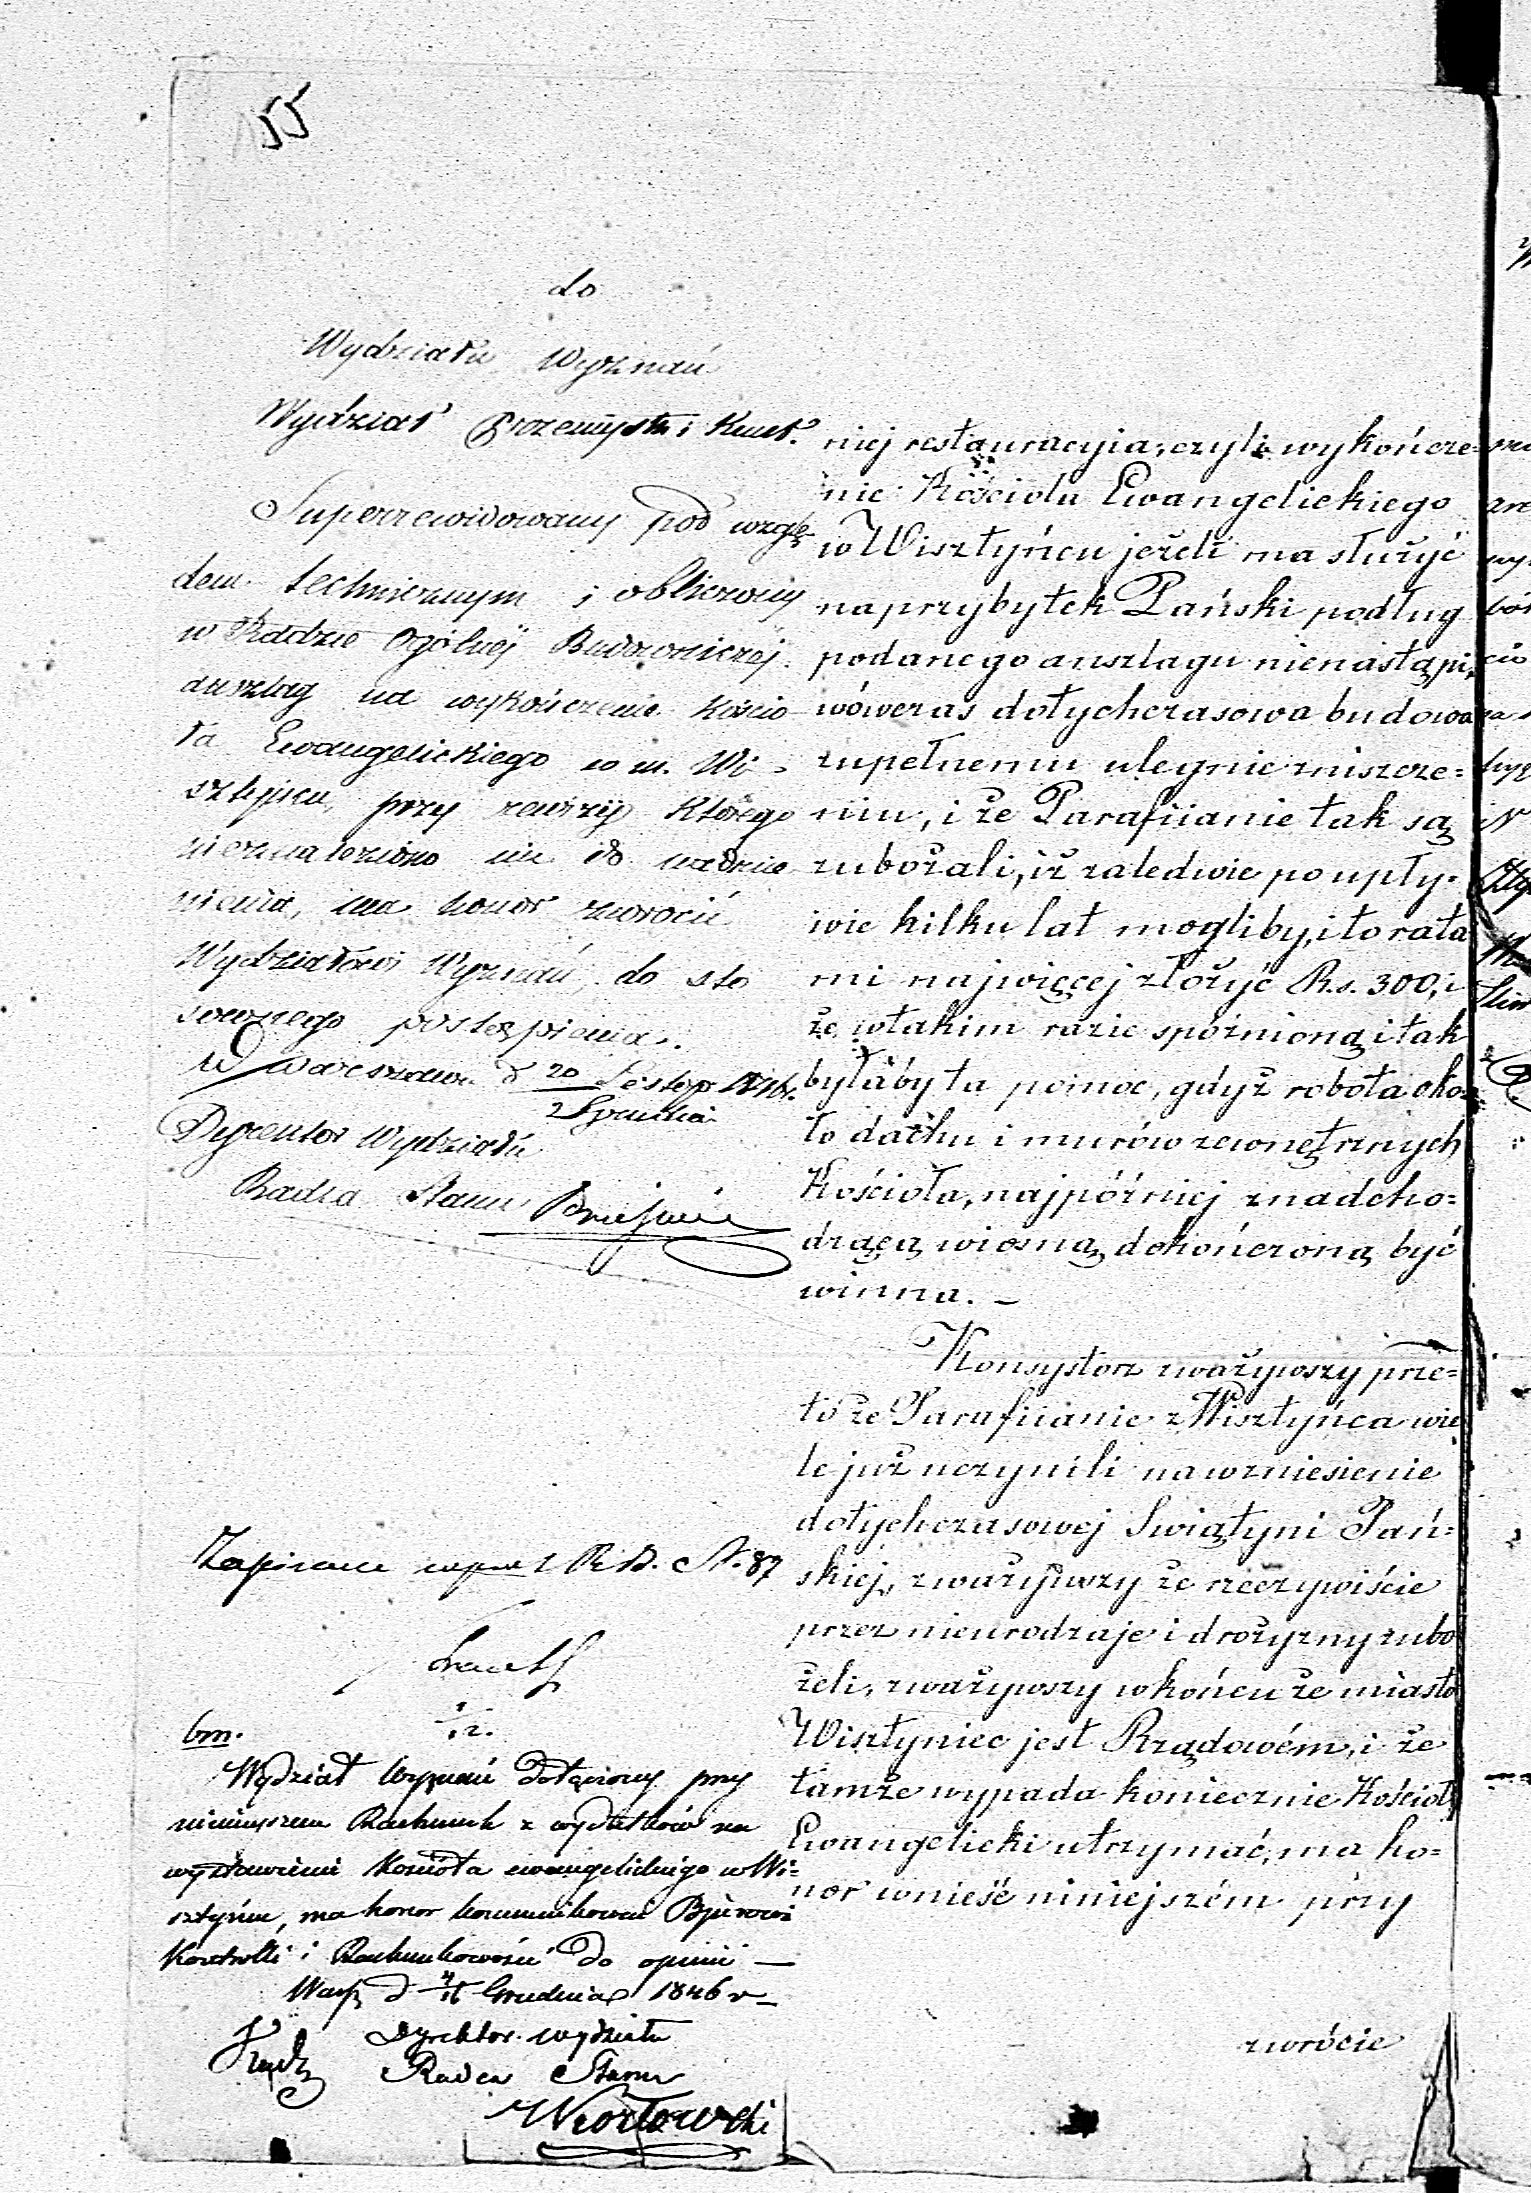 155
do
Wydziału Wyznań
Wydział Przemysłu i Kunst.
Superrewidowany pod wzglę-
dem technicznym i obliczony
w Radzie Ogólnej Budowniczej
anszlag na wykończenie Kościo
ła Ewangelickiego w m. Wi-
sztyńcu, przy rewizyi którego
nieznaleziono nic do nadmie
nienia, ma honor zwrócić
Wydziałowi Wyznań, do sto
sownego postąpienia.
w Warszawie d 20 Listop 1846r.
2 Grudnia
Dyrektor Wydziału
Radca Stanu
Zapisane R.B. N. 87
bm.
Wydział Wyznań dołączony przy
niniejszem Rachunek z wydatków na
wystawienie Kościoła ewangelickiego w Wi=
sztyńcu, ma honor kommunikować Bjurowi
Kontrolli i Rachunkowości do opinii —
Warsz d 4/16 Grudnia 1846 r
Dyrektor Wydziału
Radca Stanu
niej restauracyia, czyli wykończe=
nie Kościoła Ewangelickiego
w Wisztyńcu jeżeli ma służyć
na przybytek Pański podług
podanego anszlagu nienastąpi,
wówczas dotychczasowa budowa
zupełnemu ulegnie zniszcze=
niu, i że Parafiianie tak są
zubożali, iż zaledwie po upły-
wie kilku lat mogliby, i to rata
mi najwięcej złożyć Rs. 300, i
że w takim razie spóźnioną i tak
byłaby ta pomoc, gdyż robota oko=
ło dachu i murów zewnętrznych
Kościoła, najpóźniej z nadcho=
dzącą wiosną, dokończoną być
winna. —
Konsystorz zważywszy prze=
to że Parafiianie z Wisztyńca wie
le już uczynili na wzniesienie
dotychczasowej Swiątyni Pań=
skiej, zważywszy że rzeczywiście
przez nieurodzaje i drożyzny zubo
żeli, zważywszy w końcu że miasto
Wisztyniec jest Rządowém, i że
tamże wypada koniecznie Kościoł
Ewangelicki utrzymać, ma ho=
nor wnieść niniejszém przy
zwrócie